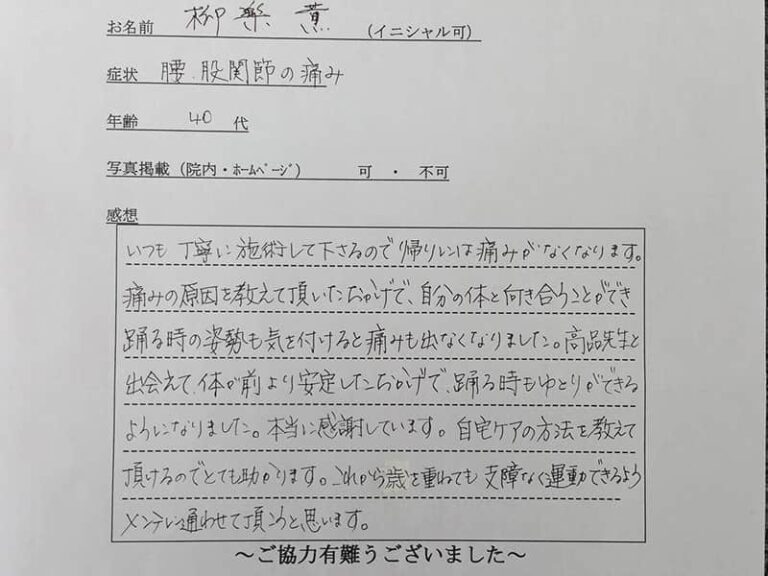 お名前 柳楽 薫 (イニシャル可)
症状 腰、股関節の痛み
年齢 40 代
写真掲載（院内・ﾎｰﾑﾍﾟｰｼﾞ） 可 ・ 不可
感想
いつも丁寧に施術して下さるので帰りには痛みがなくなります。
痛みの原因を教えて頂いたおかげで、自分の体と向き合うことができ
踊る時の姿勢も気を付けると痛みも出なくなりました。高品先生と
出会えて、体が前より安定したおかげで、踊る時もゆとりができる
ようになりました。本当に感謝しています。自宅ケアの方法を教えて
頂けるのでとても助かります。これから歳を重ねても支障なく運動できるよう
メンテしに通わせて頂こうと思います。
～ご協力有難うございました～